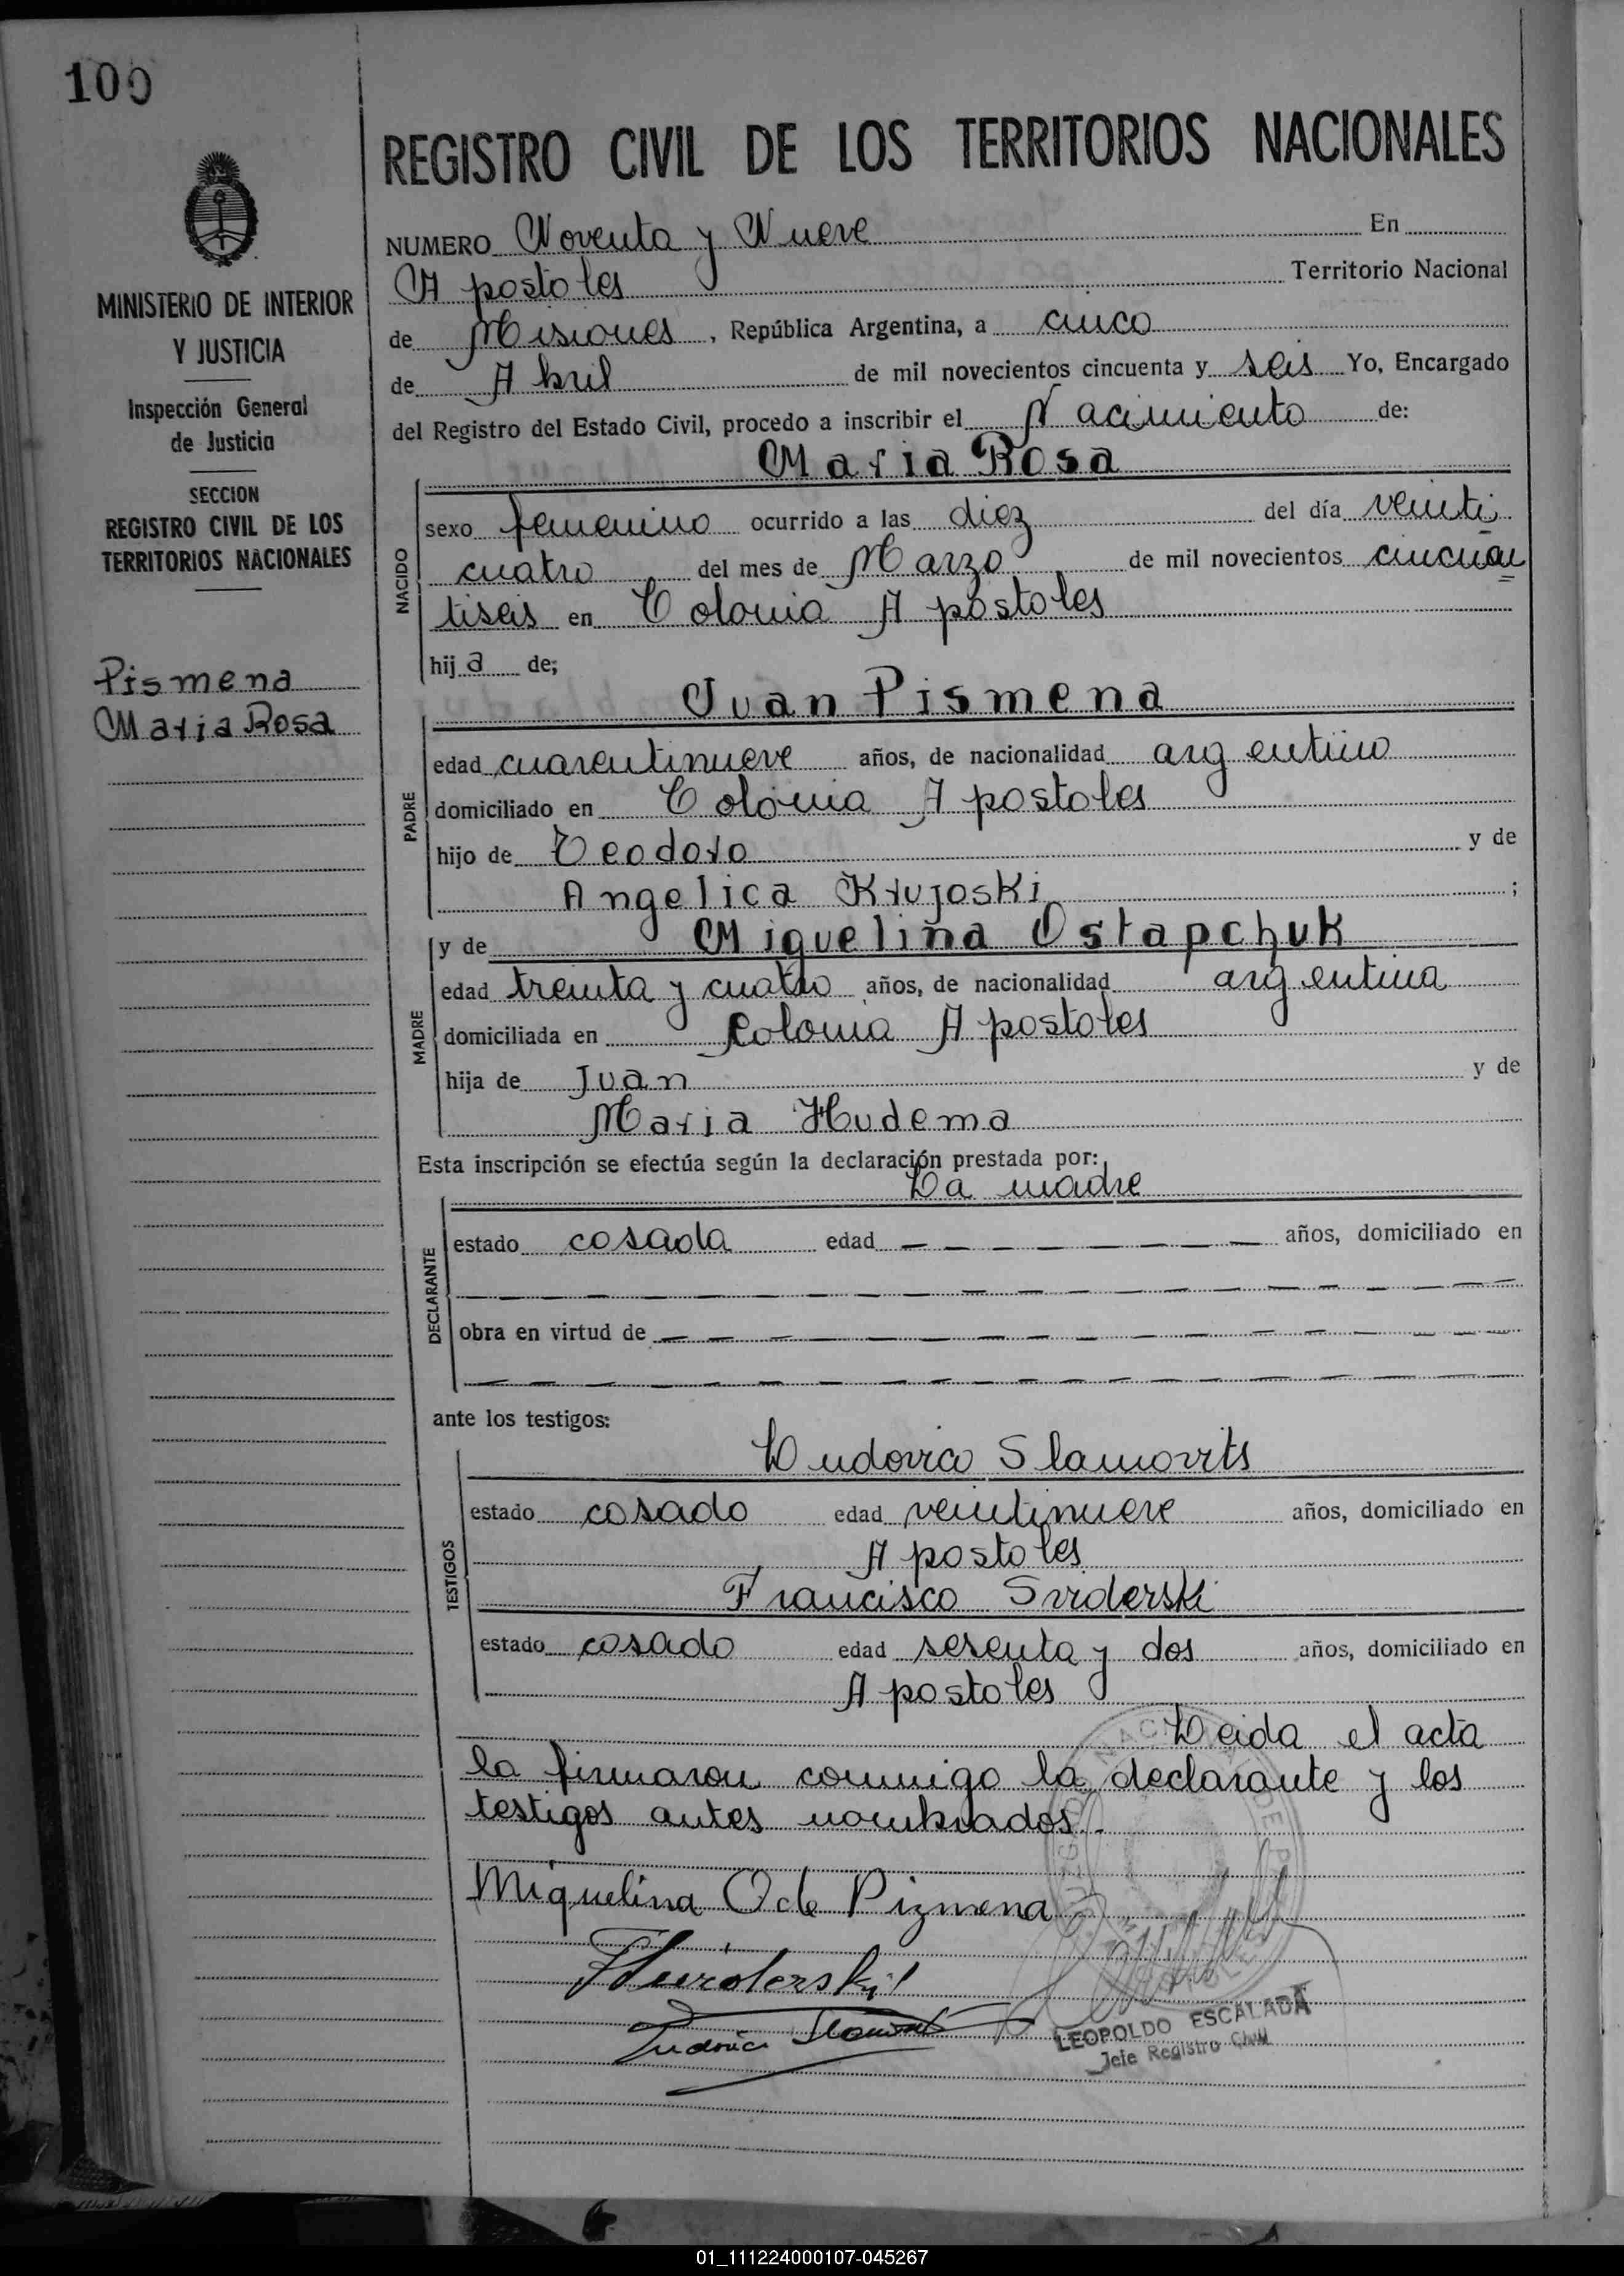 100
REGISTRO CIVIL DE LOS TERRITORIOS NACIONALES
MINISTERIO DE INTERIOR
Y JUSTICIA
Inspección General
de Justicia
SECCION
REGISTRO CIVIL DE LOS
TERRITORIOS NACIONALES
Pismena
Maria Rosa
NUMERO Noventa y Nueve En
Apostoles Territorio Nacional
de Misiones, República Argentina, a cinco
de Abril de mil novecientos cincuenta y seis Yo, Encargado
del Registro del Estado Civil, procedo a inscribir el Nacimiento de:
Maria Rosa
NACIDO
sexo femenino ocurrido a las diez del día veinti
cuatro del mes de Marzo de mil novecientos cincuen
tiseis en Colonia Apostoles
hija de;
Juan Pismena
PADRE
edad cuarentinueve años, de nacionalidad argentino
domiciliado en Colonia Apostoles
hijo de Teodoro y de
Angelica Krujoski ;
y de Miguelina Ostapchuk
MADRE
edad treinta y cuatro años, de nacionalidad argentina
domiciliada en Colonia Apostoles
hija de Juan y de
Maria Hudema
Esta inscripción se efectúa según la declaración prestada por:
La madre
DECLARANTE
estado casada edad — — — — — — — años, domiciliado en
obra en virtud de — — — — — — —
ante los testigos:
TESTIGOS
Ludovico Slamovits
estado casado edad veintinueve años, domiciliado en
Apostoles
Francisco Sviderski
estado casado edad sesenta y dos años, domiciliado en
Apostoles
Leida el acta
la firmaron conmigo la declarante y los
testigos antes nombrados.-
Miguelina O de Pizmena
LEOPOLDO ESCALADA
Jefe Registro Civil
01_111224000107-045267